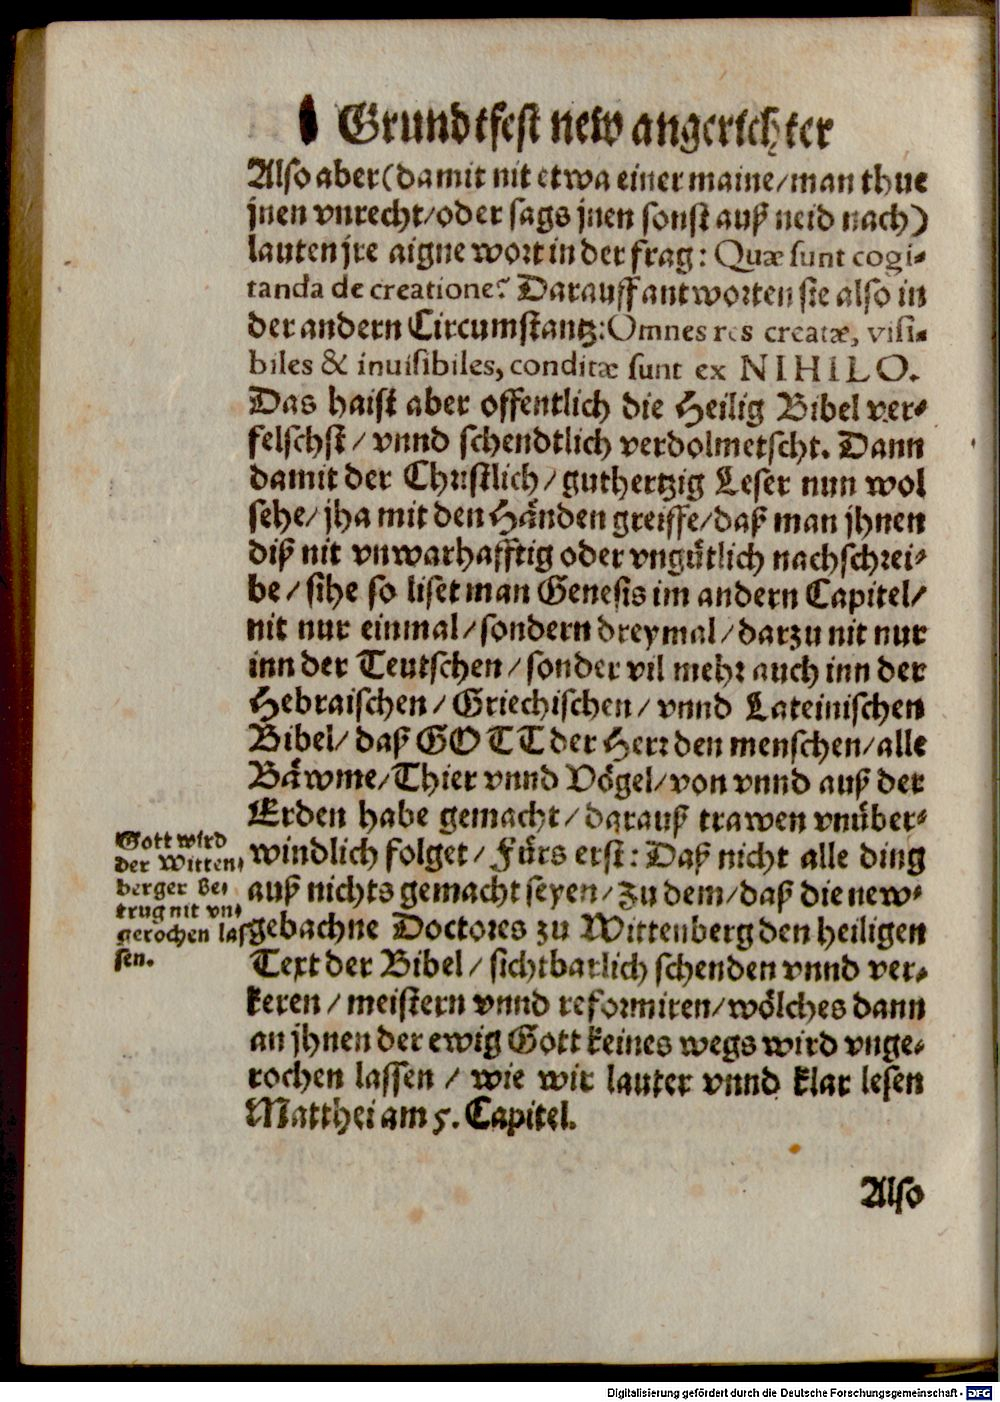 Grundtfest new angerichter
Also aber (damit nit etwa einer maine / man thue
jnen vnrecht / oder sags jnen sonst auß neid nach)
lauten jre aigne wort in der frag: Quæ sunt cogi-
tanda de creatione? Darauff antworten sie also in
der andern Circumstantz: Omnes res creatæ, visi-
biles & inuisibiles, conditæ sunt ex NIHILO.
Das haist aber offentlich die Heilig Bibel ver-
felschst / vnnd schendtlich verdolmetscht. Dann
damit der Christlich / guthertzig Leser nun wol
sehe / jha mit den Händen greiffe / daß man jhnen
diß nit vnwarhafftig oder vngütlich nachschrei-
be / sihe so liset man Genesis im andern Capitel /
nit nur einmal / sondern dreymal / darzu nit nur
inn der Teutschen / sonder vil mehr auch inn der
Hebraischen / Griechischen / vnnd Lateinischen
Bibel / daß GOTT der Herr den menschen / alle
Bäwme / Thier vnnd Vögel / von vnnd auß der
Erden habe gemacht / darauß trawen vnüber-
windlich folget / Fürs erst: Daß nicht alle ding
auß nichts gemacht seyen / zu dem / daß die new-
gebachne Doctores zu Wittenberg den heiligen
Text der Bibel / sichtbarlich schenden vnnd ver-
keren / meistern vnnd reformiren / wölches dann
an jhnen der ewig Gott keines wegs wird vnge-
rochen lassen / wie wir lauter vnnd klar lesen
Matthei am 5. Capitel.
Gott wird
der Witten-
berger Be-
trug nit vn-
gerochen las
sen.
Also
Digitalisierung gefördert durch die Deutsche Forschungsgemeinschaft - DFG